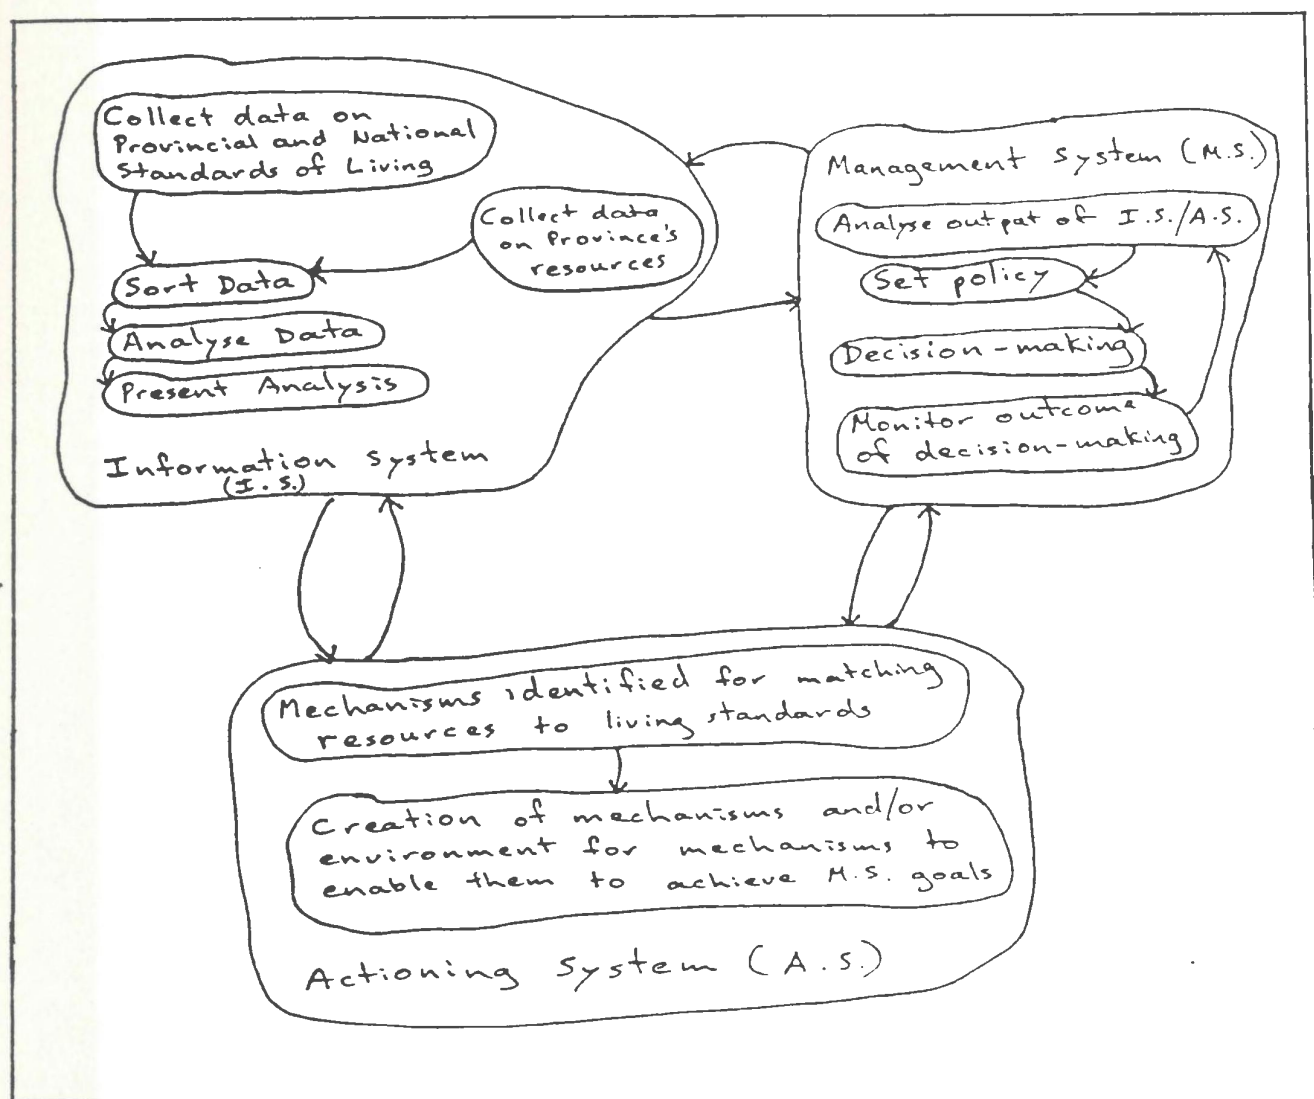 Collect data on
Provincial and National
Standards of Living
Collect data
on Province's
resources
Sort Data
Analyse Data
Present Analysis
Information System
(I.S.)
Management System (M.S.)
Analyse output of I.S./A.S.
Set policy
Decision-making
Monitor outcome
of decision-making
Mechanisms identified for matching
resources to living standards
Creation of mechanisms and/or
environment for mechanisms to
enable them to achieve M.S. goals
Actioning System (A.S.)